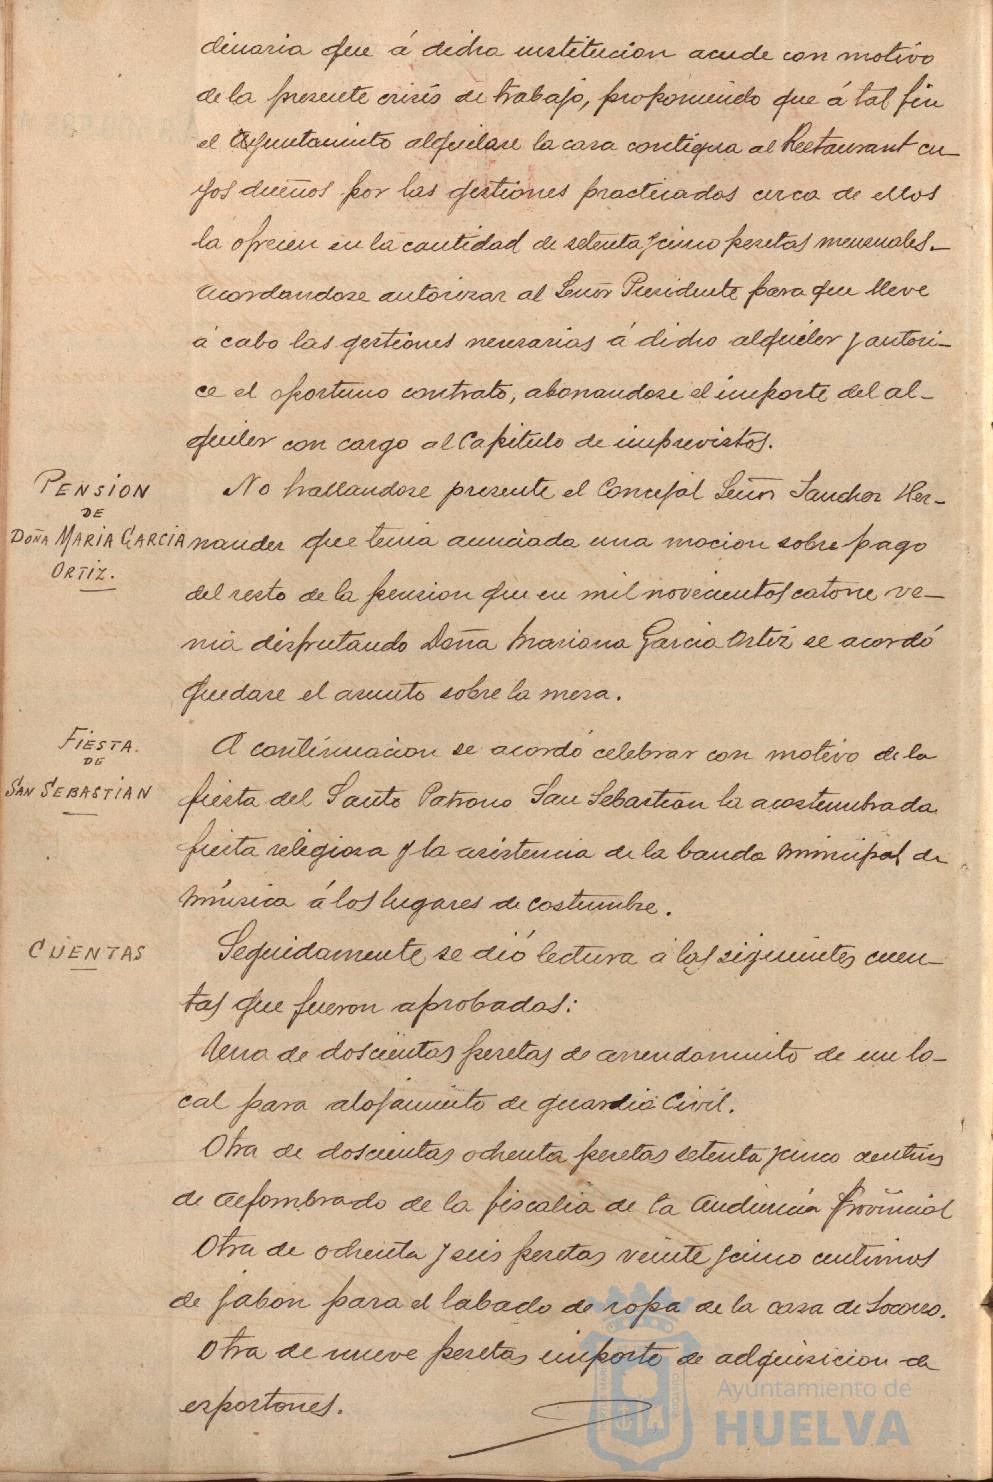 dinaria que á dicha institucion acude con motivo
de la presente crisis de trabajo, proponiendo que á tal fin
el Ayuntamiento alquilase la casa contigua al Restaurant cu-
yos dueños por las gestiones practicadas cerca de ellos
la ofrecen en la cantidad de setenta y cinco pesetas mensuales.-
Acordandose autorizar al Señor Presidente para que lleve
á cabo las gestiones necesarias á dicho alquiler y autori-
ce el oportuno contrato, abonandose el importe del al-
quiler con cargo al Capitulo de imprevistos.
PENSION
DE
DOÑA MARIA GARCIA
ORTIZ.
No hallandose presente el Concejal Señor Sanchez Her-
nandez que tenia anunciada una mocion sobre pago
del resto de la pension que en mil novecientos catorce ve-
nia disfrutando Doña Mariana Garcia Ortiz se acordó
quedase el asunto sobre la mesa.
FIESTA.
DE
SAN SEBASTIAN
A continuacion se acordó celebrar con motivo de la
fiesta del Santo Patrono San Sebastian la acostumbrada
fiesta religiosa y la asistencia de la banda municipal de
música á los lugares de costumbre.
CUENTAS
Seguidamente se dió lectura á las siguientes cuen-
tas que fueron aprobadas:
Una de doscientas pesetas de arrendamiento de un lo-
cal para alojamiento de guardia Civil.
Otra de doscientas ochenta pesetas setenta y cinco centims
de alfombrado de la fiscalia de la Audiencia Provincial
Otra de ochenta y seis pesetas veinte y cinco centimos
de jabon para el labado de ropa de la casa de Socorro.
Otra de nueve pesetas importe de adquisicion de
esportones.
Ayuntamiento de
HUELVA